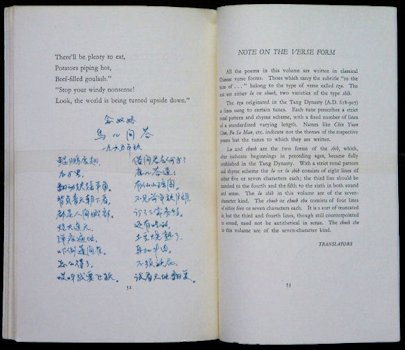 There'll be plenty to eat,
Potatoes piping hot,
Beef-filled goulash."
"Stop your windy nonsense!
Look, the world is being turned upside down."
念奴娇
鸟儿问答
一九六五年秋
鲲鹏展翅,
九万里,
翻动扶摇羊角。
背负青天朝下看,
都是人间城郭。
炮火连天,
弹痕遍地,
吓倒蓬间雀。
怎么得了,
哎呀我要飞跃。
借问君去何方?
雀儿答道:
有仙山琼阁。
不见前年秋月朗,
订了三家条约。
还有吃的,
土豆烧熟了,
再加牛肉。
不须放屁,
试看天地翻覆。
52
NOTE ON THE VERSE FORM
All the poems in this volume are written in classical
Chinese verse forms. Those which carry the subtitle "to the
tune of . . ." belong to the type of verse called The
are either or two varieties of the type shih.
The originated in the Tang Dynasty (A.D. 618-907)
lines sung to certain tunes. Each tune prescribes a strict
tonal pattern and rhyme scheme, with a fixed number of lines
of a standardized varying length. Names like
etc. indicate not the themes of the respective
tunes but the tunes to which they are written.
and are the two forms of the shih, which,
after indicate beginnings in preceding ages, became fully
established in the Tang Dynasty. With a strict tonal pattern
and rhyme scheme the consists of eight lines of
either five or seven characters each; the third line should be
to the fourth and the fifth to the sixth in both sound
and sense. The in this volume are of the seven-
character kind. The consists of four lines
of either five or seven characters each. It is a sort of truncated
but the third and fourth lines, though still counterpointed
in sound, need not be antithetical in sense. The
in this volume are of the seven-character kind.
TRANSLATORS
53